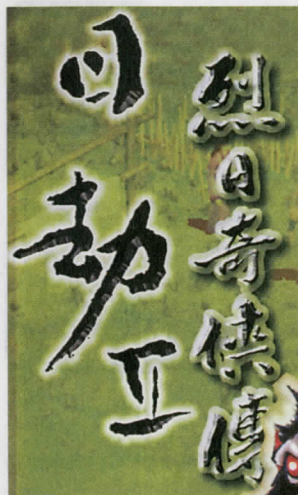 烈日奇俠傳
日劫工